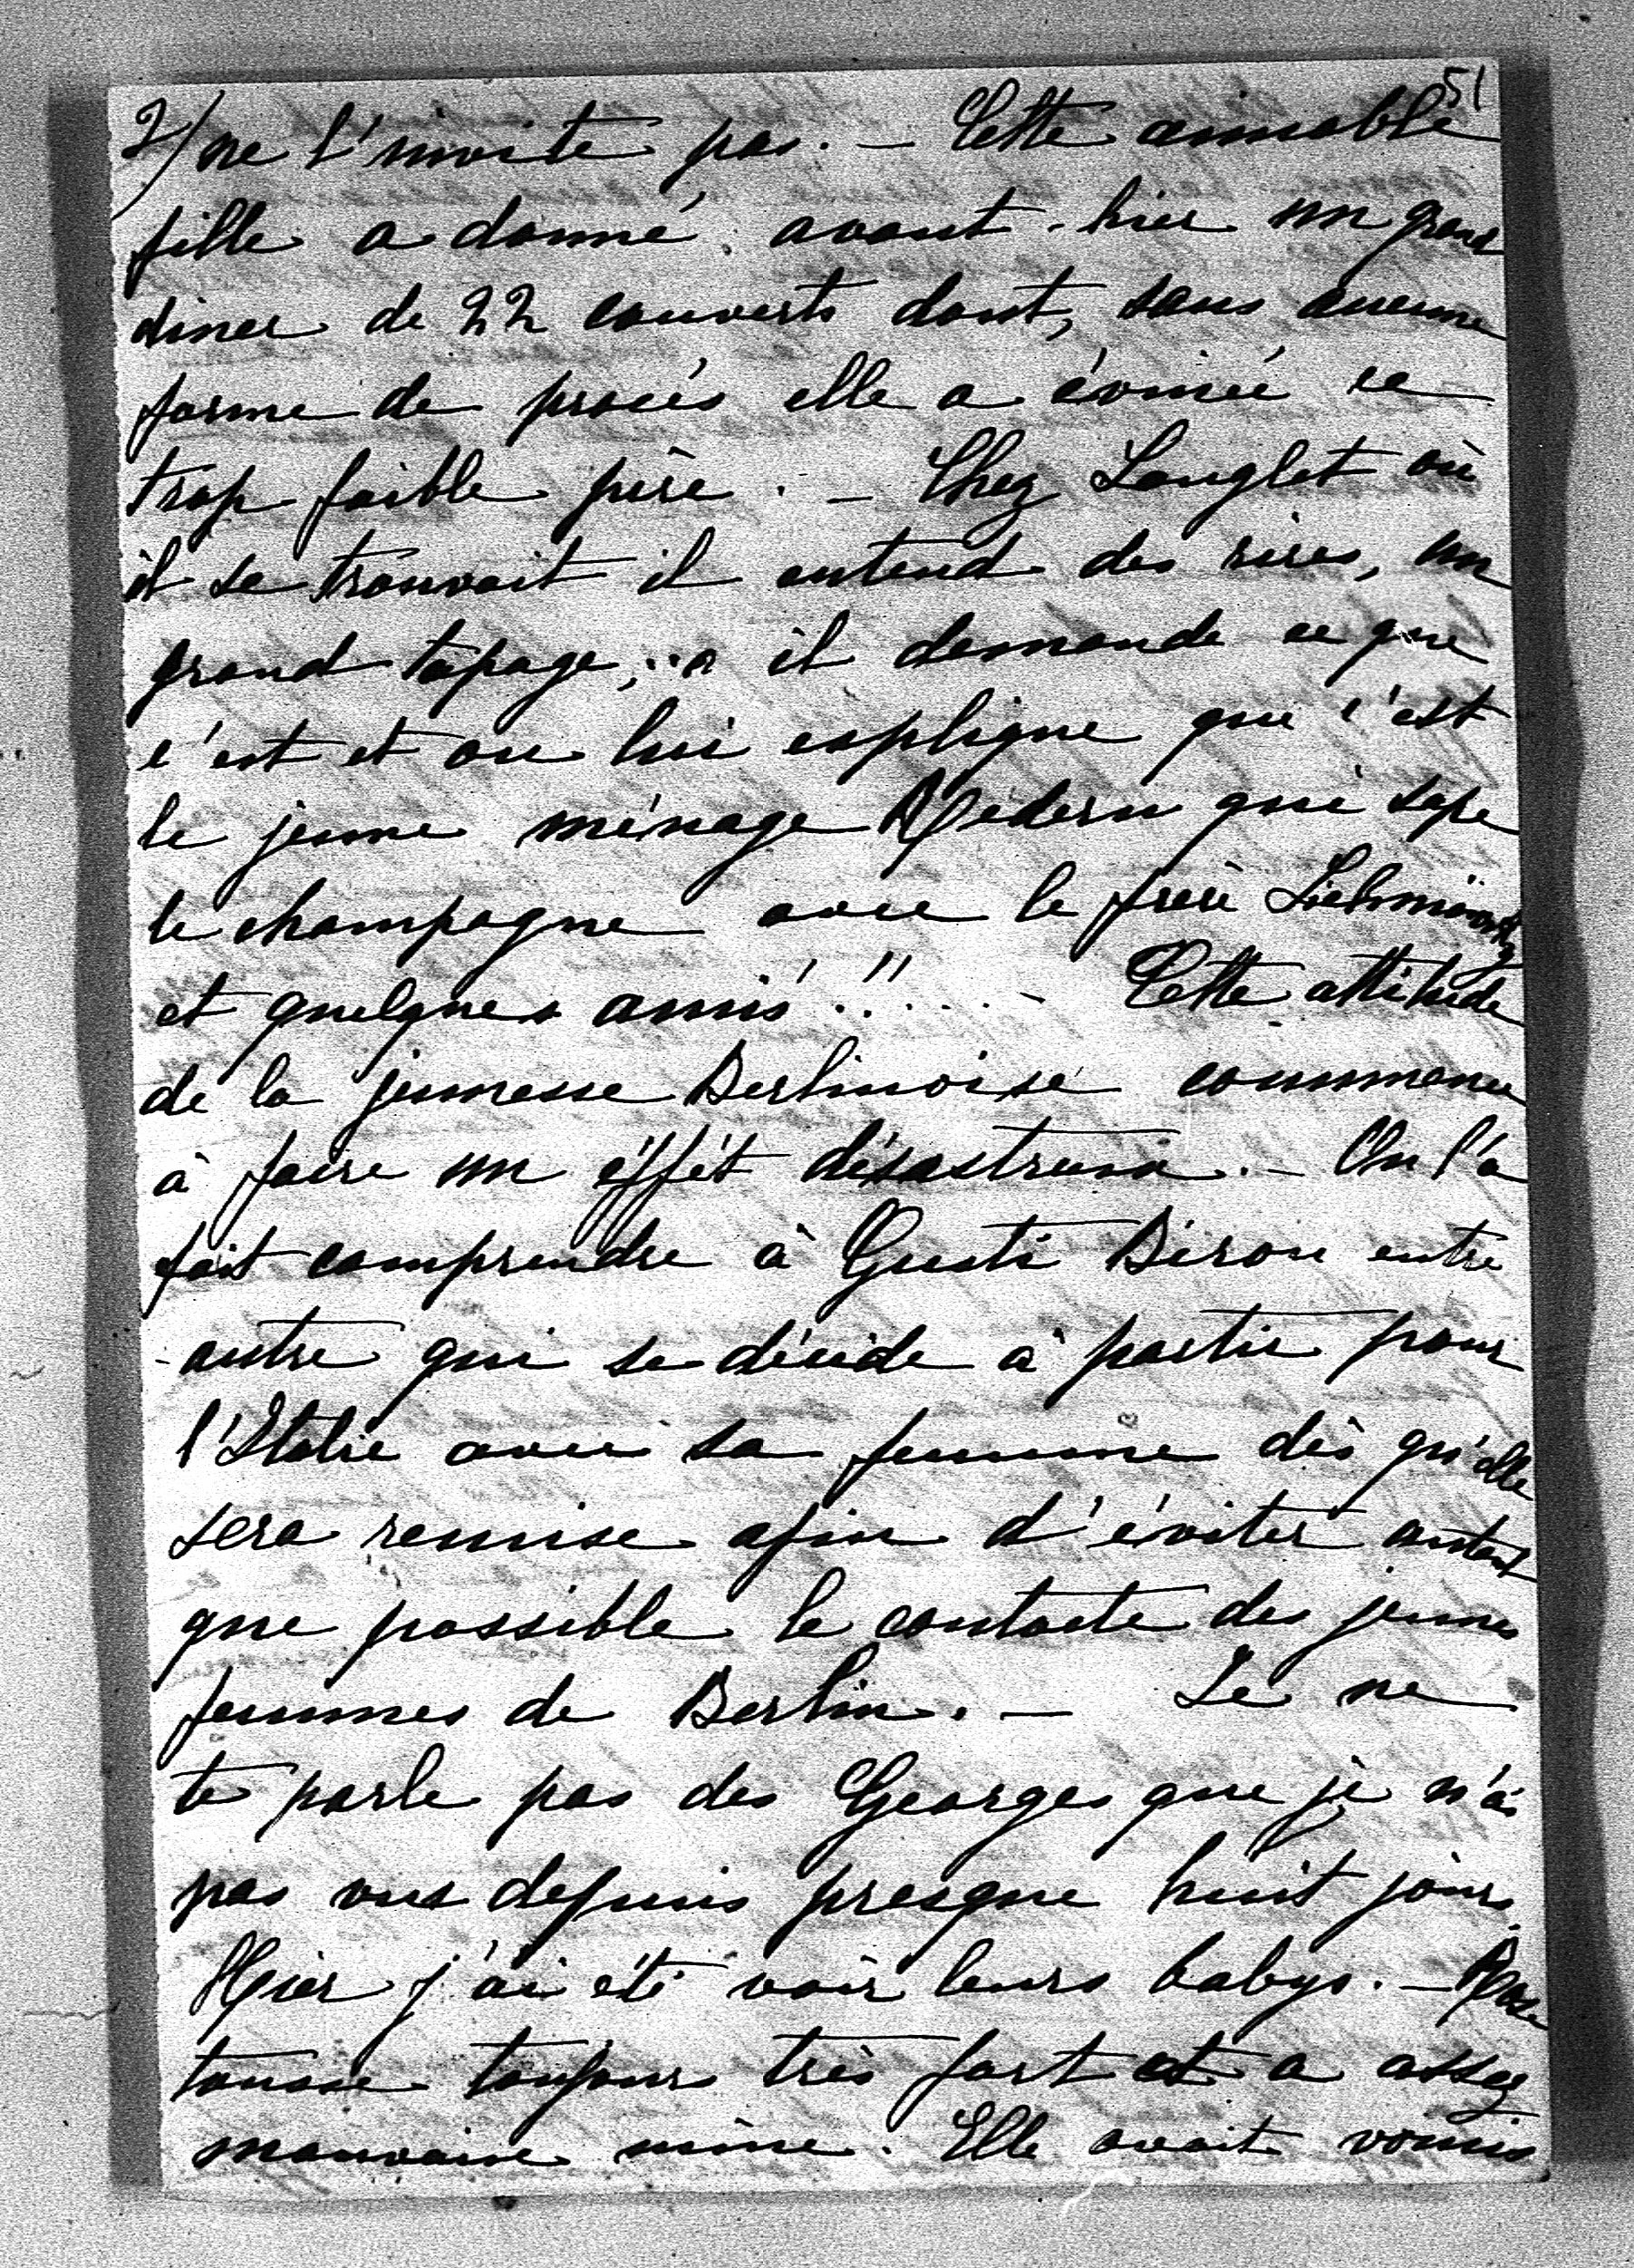 51
2/ ne l'invite pas. — Cette aimable
fille a donné avant-hier un grand
diner de 22 couverts dont, sans aucune
forme de procès elle a évincé ce
trop faible père. — Chez Langlet où
il se trouvait il entend des rires, un
grand tapage, .. il demande ce que
c'est et on lui explique que c'est
le jeune ménage Redern qui sape
le champagne avec le frère
et quelques amis!!.... — Cette attitude
de la jeunesse Berlinoise commence
à faire un éffét désastreux. — On l'a
fait comprendre à Gusti Biron entre
autre qui se décide à partir pour
l'Italie avec sa femme dès qu'elle
sera remise afin d'éviter autant
que possible le contacte des jeunes
femmes de Berlin. — Je ne
te parle pas des Georges que je n'ai
pas vus depuis presque huit jours.
Hier j'ai été voir leurs babys. — Rose
tousse toujours très fort et a assez
mauvaise mine. Elle avait vomis